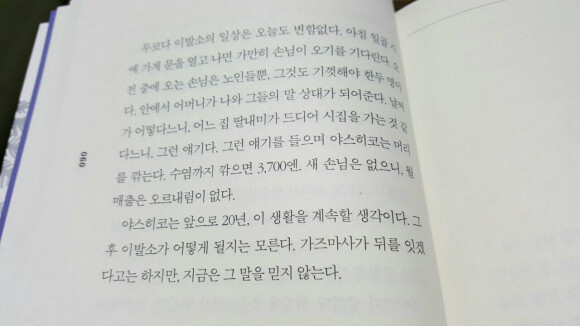 무코다 이발소의 일상은 오늘도 변함없다. 아침 일곱 시
에 가게 문을 열고 나면 가만히 손님이 오기를 기다린다. 오
전 중에 오는 손님은 노인들뿐, 그것도 기껏해야 한두 명이
다. 안에서 어머니가 나와 그들의 말 상대가 되어준다. 날씨
가 어떻다느니, 어느 집 딸내미가 드디어 시집을 가는 것 같
다느니, 그런 얘기다. 그런 얘기를 들으며 야스히코는 머리
를 깎는다. 수염까지 깎으면 3,700엔. 새 손님은 없으니, 월
매출은 오르내림이 없다.
야스히코는 앞으로 20년, 이 생활을 계속할 생각이다. 그
후 이발소가 어떻게 될지는 모른다. 가즈마사가 뒤를 잇겠
다고는 하지만, 지금은 그 말을 믿지 않는다.
060